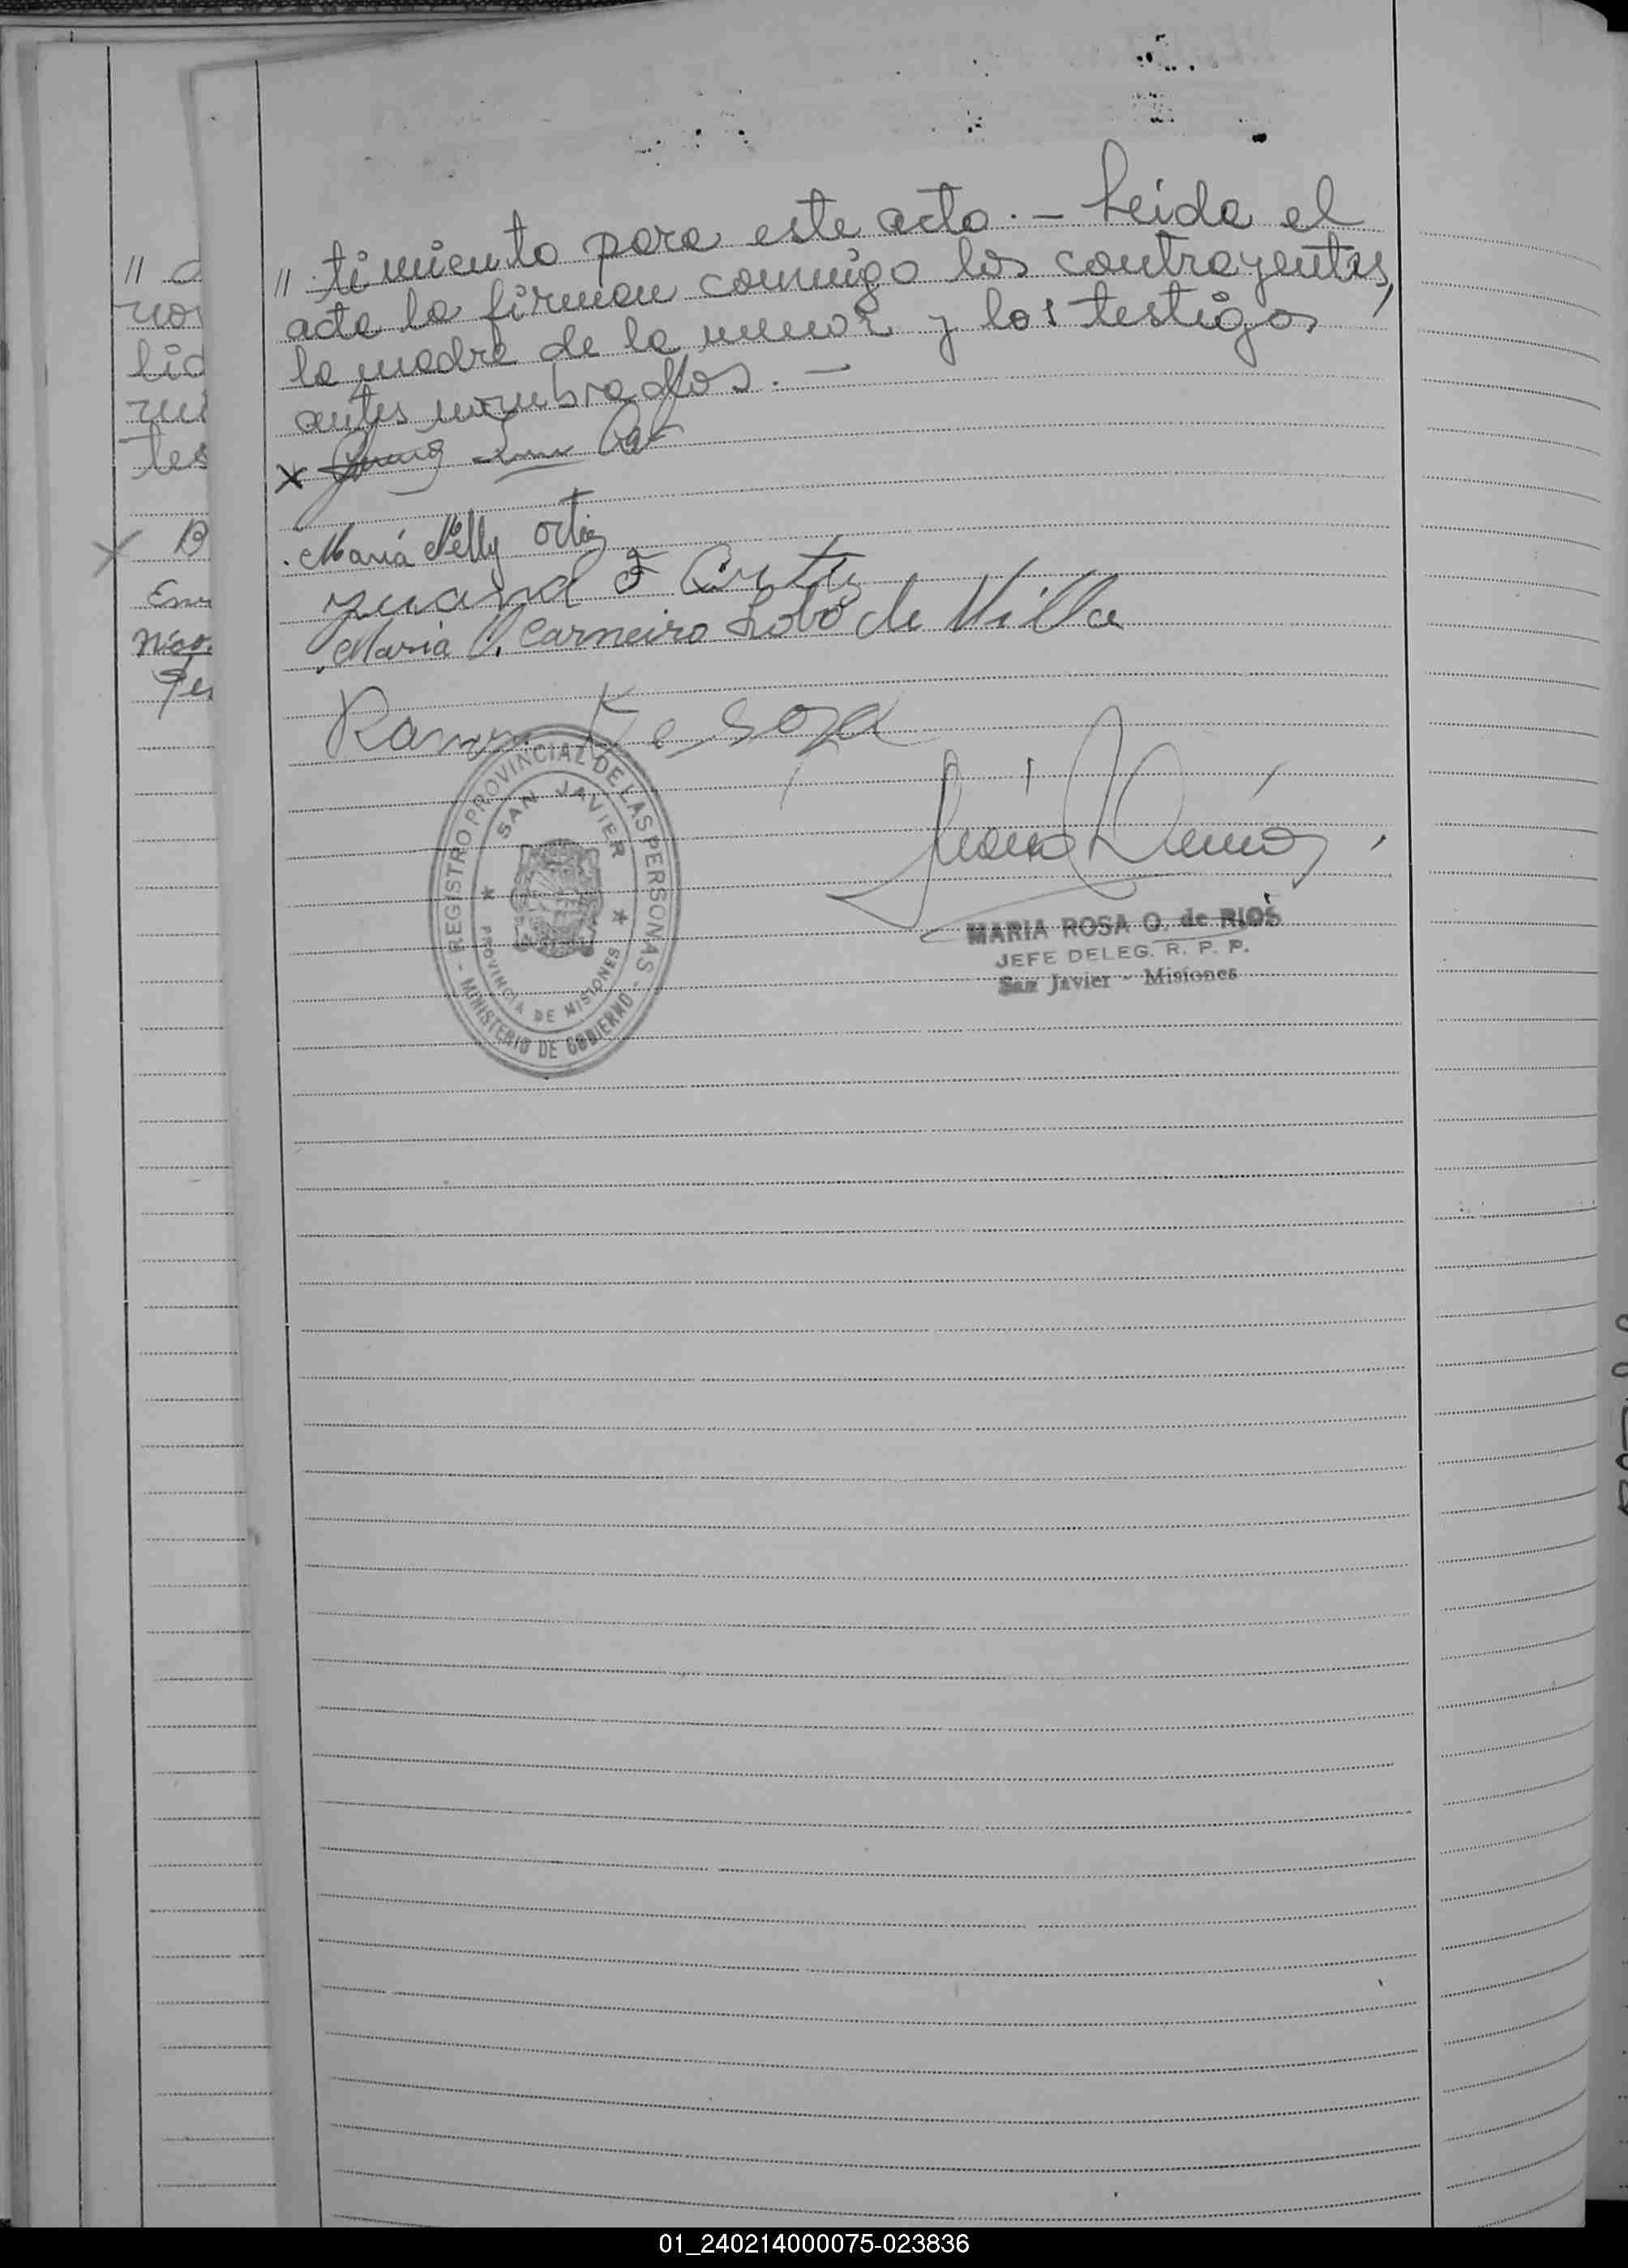 // timiento para este acto. — Leida el
acta la firman conmigo los contrayentes,
la madre de la menor y los testigos
antes nombrados. —
x
María Nelly Ortiz
Juana F Ortiz
Maria C. Carneiro Lobo de Villa
Ramon De Soza
REGISTRO PROVINCIAL DE LAS PERSONAS
- MINISTERIO DE GOBIERNO -
SAN JAVIER
PROVINCIA DE MISIONES
MARIA ROSA O. de RIOS
JEFE DELEG. R. P. P.
San Javier - Misiones
// a
nor
lid
tes
X B
01_240214000075-023836